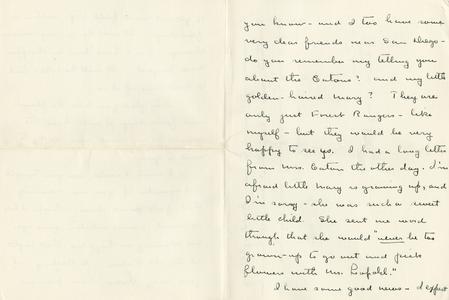 you know - and I too have some
very dear friends near San Diego -
do you remember my telling you
about the Eatons? and my little
golden-haired Mary? They are
only just Forest Rangers - like
myself - but they would be very
happy to see yo. I had a long letter
from Mrs. Eaton the other day. I'm
afraid little Mary is growing up, and
I'm sorry - she was such a sweet
little child. She sent me word
though that she would "never be too
grown-up to go out and pick
flowers with Mr. Leopold."
I have some good news - I expect